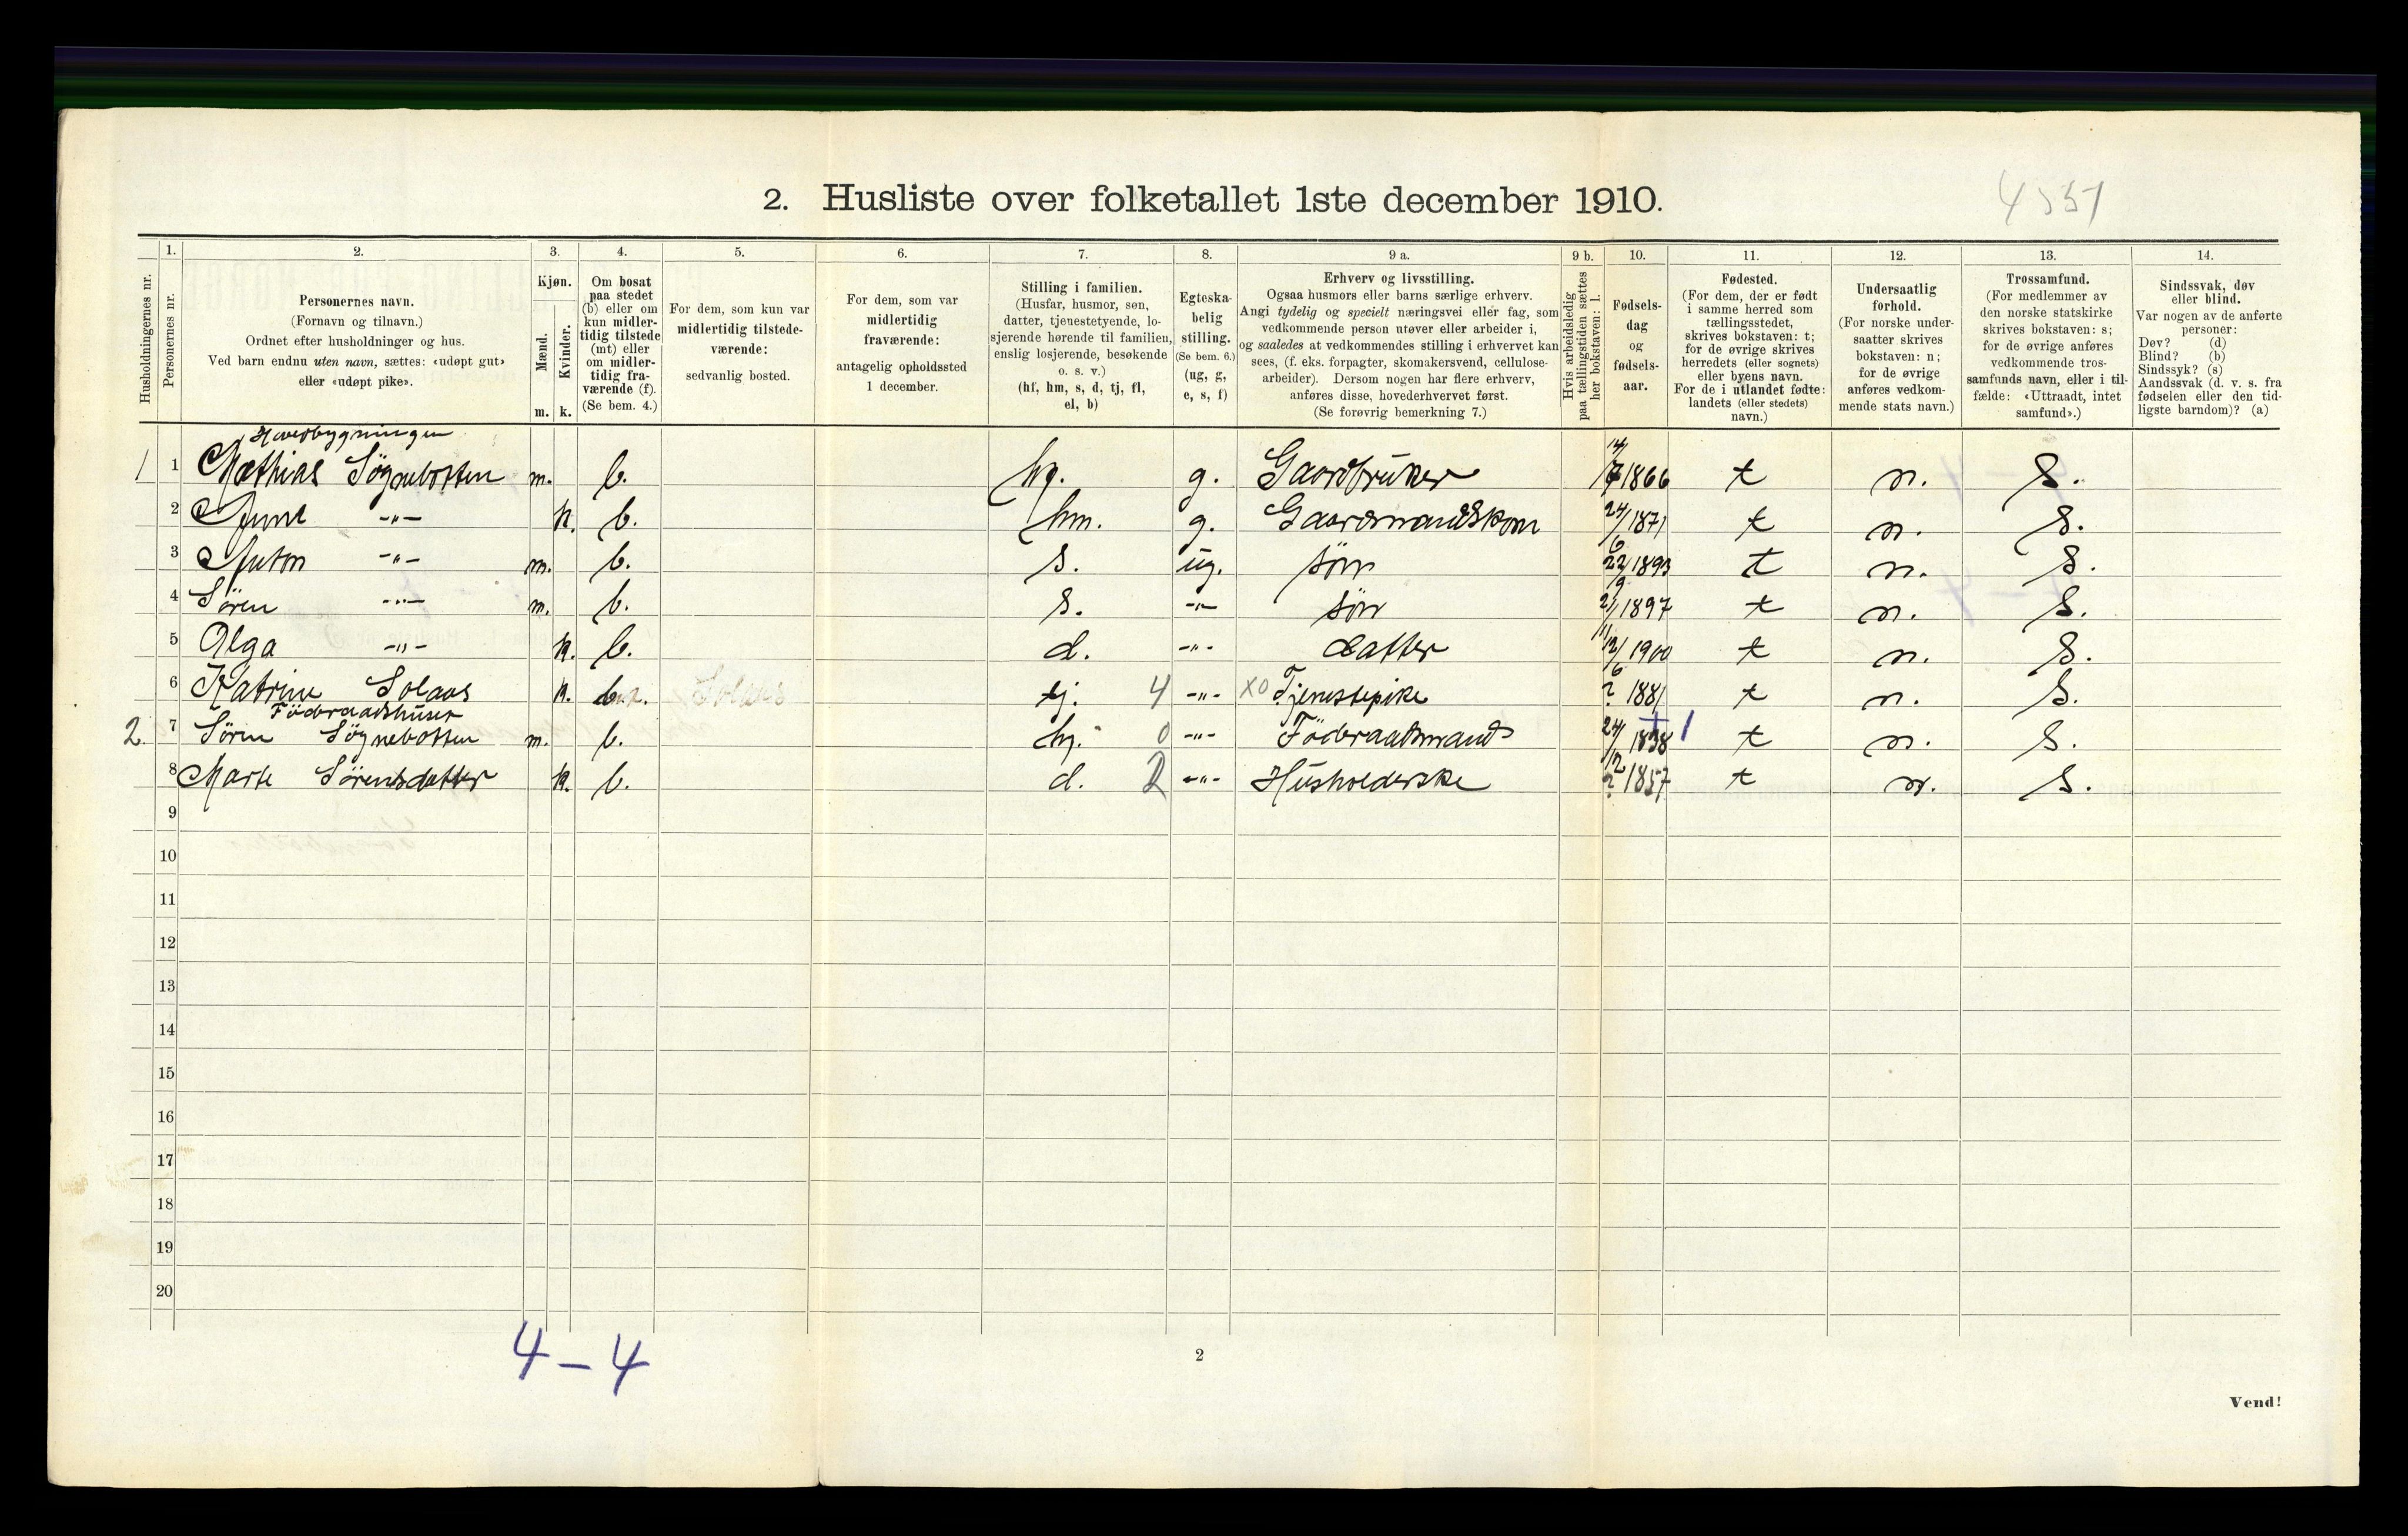 2. Husliste over folketallet 1ste december 1910.
4557
Husholdningernes nr.
1.
Personernes nr.
2.
Personernes navn.
(Fornavn og tilnavn.)
Ordnet efter husholdninger og hus.
Ved barn endnu uten navn, sættes: «udøpt gut»
eller «udøpt pike».
3.
Kjøn.
Mænd.
Kvinder.
m. k.
4.
Om bosat
paa stedet
(b) eller om
kun midler-
tidig tilstede
(mt) eller
om midler-
tidig fra-
værende (f).
(Se bem. 4.)
5.
For dem, som kun var
midlertidig tilstede-
værende:
sedvanlig bosted.
6.
For dem, som var
midlertidig
fraværende:
antagelig opholdssted
1 december.
7.
Stilling i familien.
(Husfar, husmor, søn,
datter, tjenestetyende, lo-
sjerende hørende til familien,
enslig losjerende, besøkende
o. s. v.)
(hf, hm, s, d, tj, fl,
el, b)
8.
Egteska-
belig
stilling.
(Se bem. 6.)
(ug, g,
e, s, f)
9 a.
Erhverv og livsstilling.
Ogsaa husmors eller barns særlige erhverv.
Angi tydelig og specielt næringsvei eller fag, som
vedkommende person utøver eller arbeider i,
og saaledes at vedkommendes stilling i erhvervet kan
sees, (f. eks. forpagter, skomakersvend, cellulose-
arbeider). Dersom nogen har flere erhverv,
anføres disse, hovederhvervet først.
(Se forøvrig bemerkning 7.)
9 b.
Hvis arbeidsledig
paa tællingstiden sættes
her bokstaven: l.
10.
Fødsels-
dag
og
fødsels-
aar.
11.
Fødested.
(For dem, der er født
i samme herred som
tællingsstedet,
skrives bokstaven: t;
for de øvrige skrives
herredets (eller sognets)
eller byens navn.
For de i utlandet fødte:
landets (eller stedets)
navn.)
12.
Undersaatlig
forhold.
(For norske under-
saatter skrives
bokstaven: n;
for de øvrige
anføres vedkom-
mende stats navn.)
13.
Trossamfund.
(For medlemmer av
den norske statskirke
skrives bokstaven: s;
for de øvrige anføres
vedkommende tros-
samfunds navn, eller i til-
fælde: «Uttraadt, intet
samfund».)
14.
Sindssvak, døv
eller blind.
Var nogen av de anførte
personer:
Døv? (d)
Blind? (b)
Sindssyk? (s)
Aandssvak (d. v. s. fra
fødselen eller den tid-
ligste barndom)? (a)
Hovedbygningen
1 1 Mathias Søgnebotten m. b. g. Gaardbruker 14/7 1866 t n. S.
2 Anne -"- k. b. hm. g. Gaardmandskone 24/6 1871 t n. S.
3 Anton -"- m. b. s. ug. søn 22/9 1893 t n. S.
4 Sören -"- m. b. s. -"- søn 21/11 1897 t n. S.
5 Olga -"- k. b. d. -"- datter 12/6 1900 t n. S.
6 Katrine Solaas k. b. Solaas tj. 4 -"- XO Tjenestepike ? 1881 t n. S.
Föderaadshuset
2. 7 Sören Søgnebotten m. b. 0 -"- Föderaadsmand 24/12 1838 1 t n. S.
8 Marte Sörensdatter k. b. d. 2 -"- Husholderske ? 1857 t n. S.
9
10
11
12
13
14
15
16
17
18
19
20
4 - 4
2
Vend!